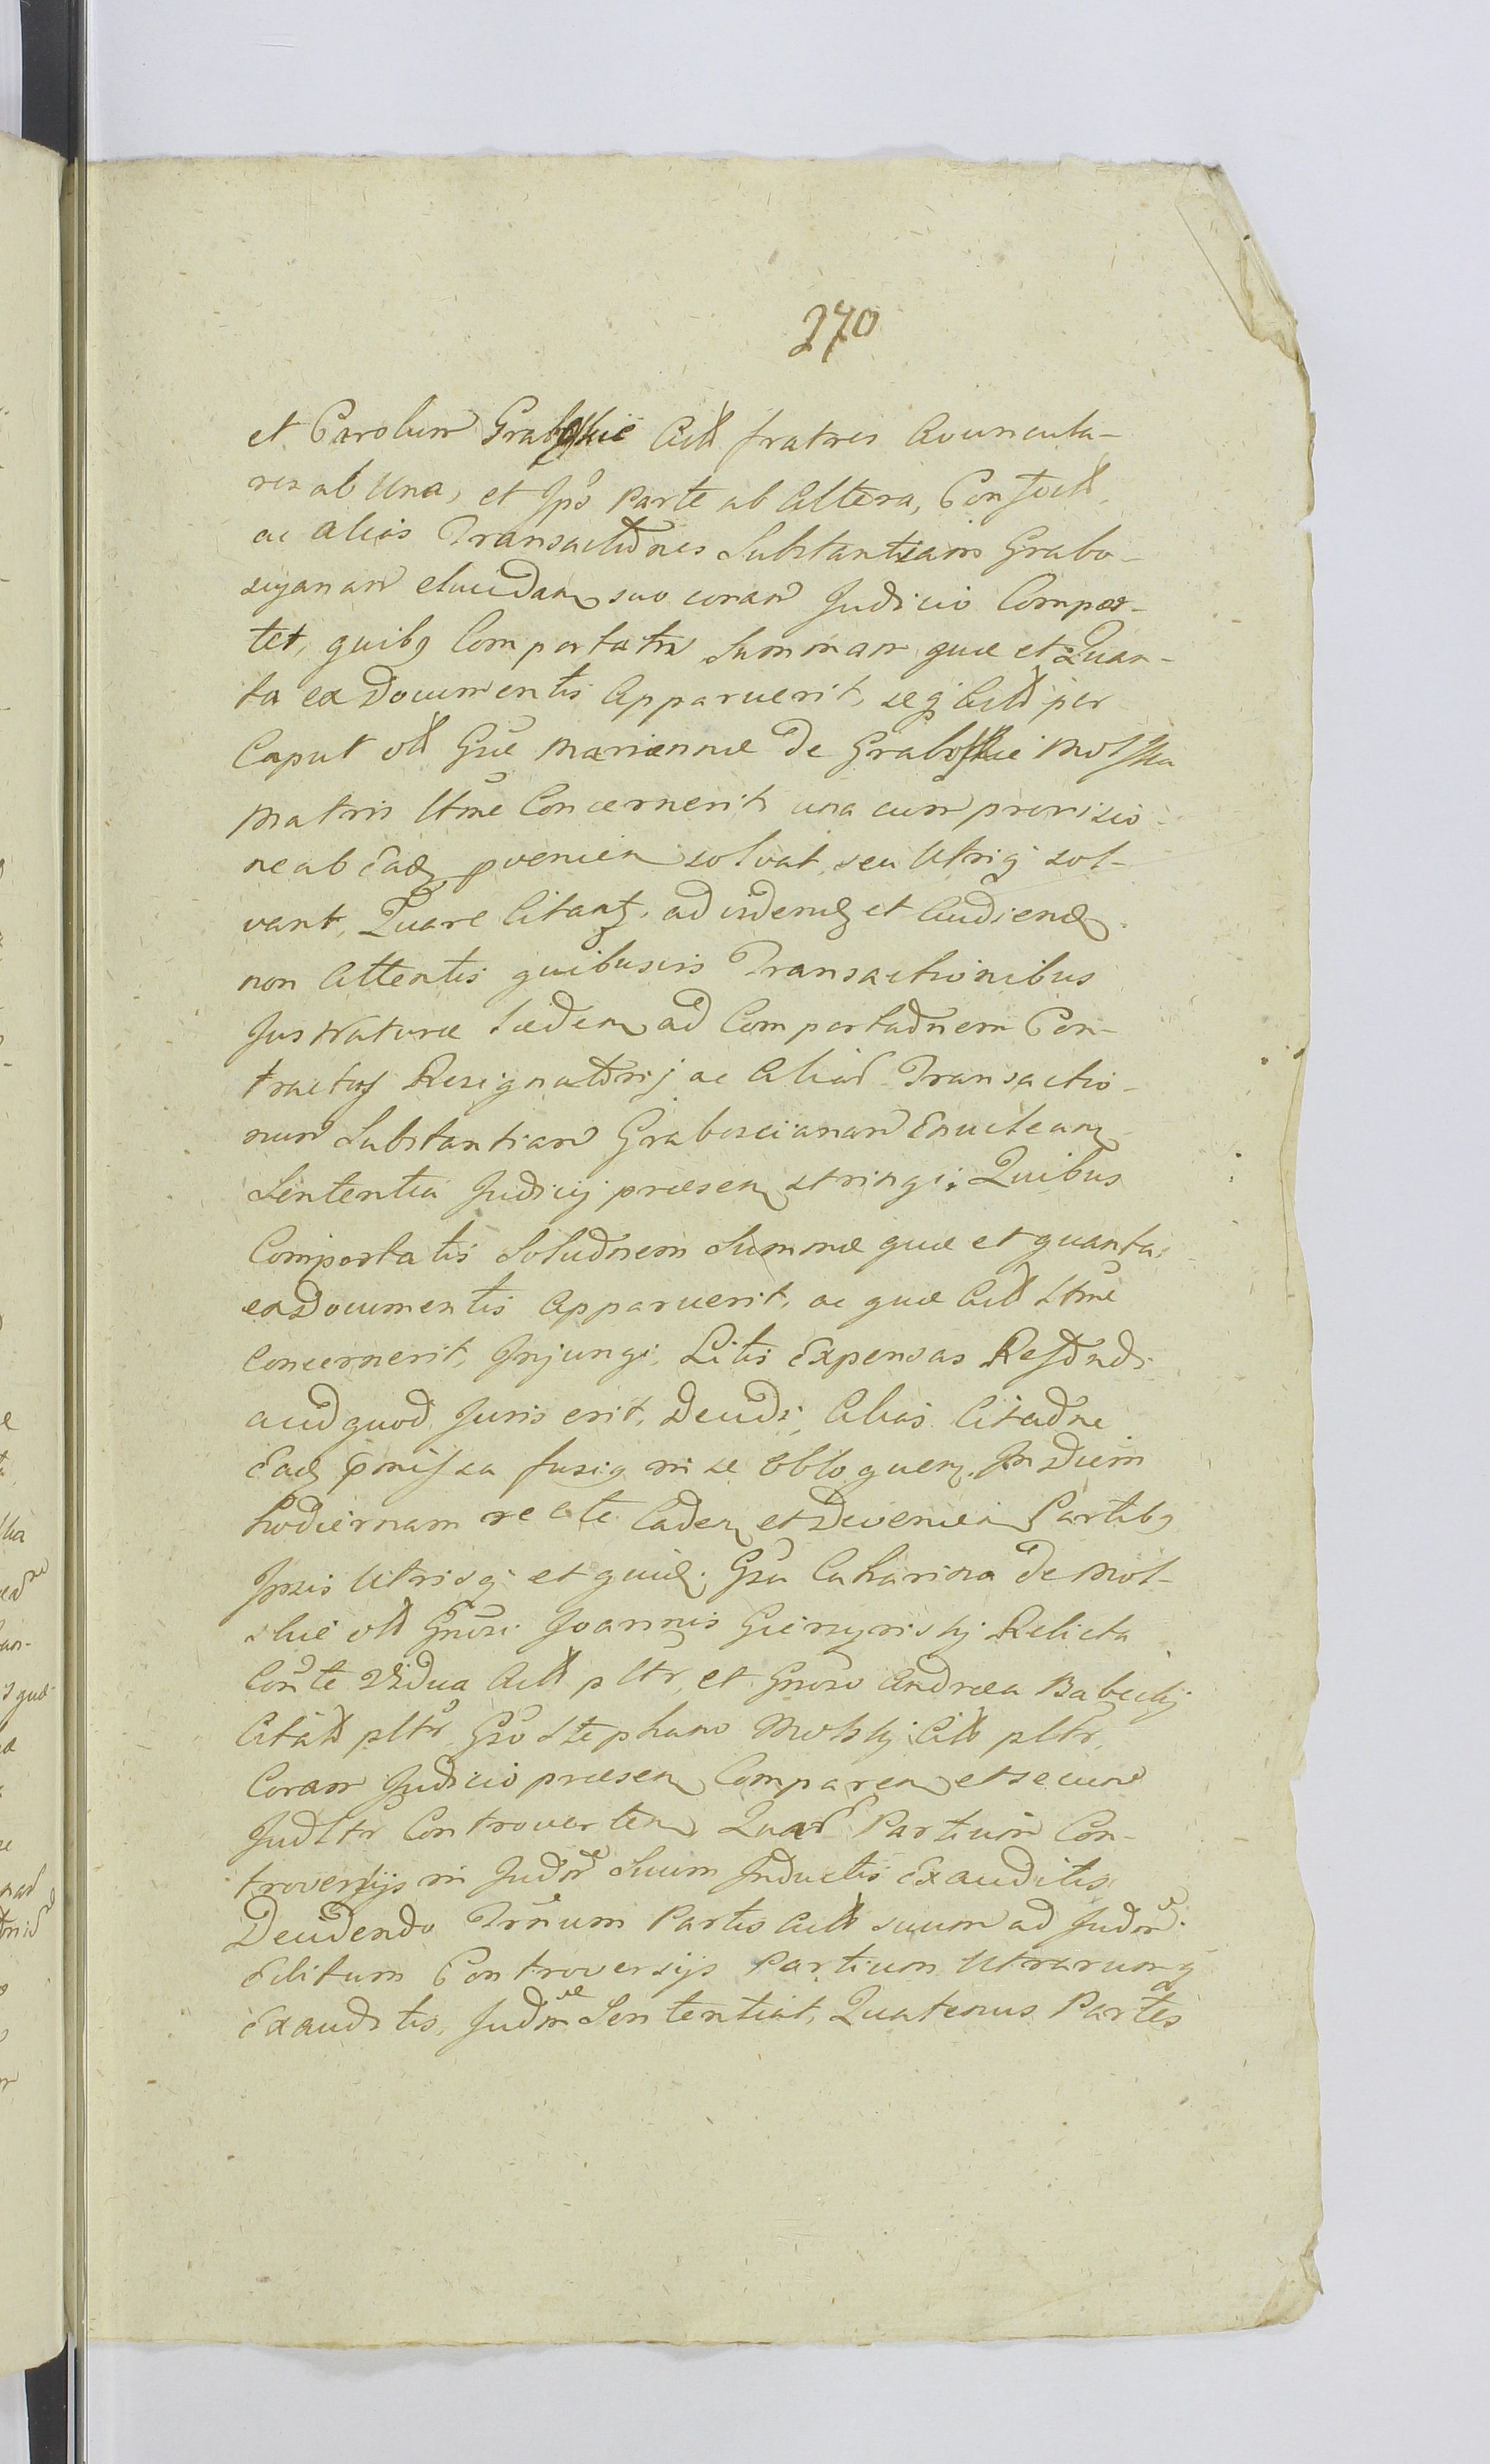 270
et Carolum Graboskie Actt fratres Avuncula-
res ab Una, et Ipõ Parte ab Altera, Confectt
ac alias Transactões Substantiam Grabo-
scyanam elucidan suo coram Judicio Compor-
tet, quibq Comportatis Summam quæ et Quan-
ta ex Documentis Apparuerit, seq Actt per
Caput ott Gsæ Mariannæ de Graboskie Molska
Matris Ltme Concernerit una cum provisio-
ne ab Eadq pvenien solvat, seu Utriq sol-
vant, Quare Citant, ad videndq et Audiendq
non Attentis quibusvis Transactionibus
Jus Naturæ Lædenq ad Comportaõnem Con-
tractus Resignatõrij ac Aliar Transactio-
num Substantiam Graboscianam Enuclean
Sententia Judicij præsen stringi; Quibus
Comportatis Soluõnem Summæ quæ et quanta
ex Documentis Apparuerit, ac quæ Actt Ltme
Concernerit, Injungi, Litis Expensas Refndi
aliudquod Juris erit, Decidi, Alias Citaõne
Eadq pmissa fusiq in se Obloquen. In Diem
hodiernam recte Caden et Devenien Partibq
Ipsis Utrisq et quidq Gsa Catharina de Mol-
skie ott Gnosi Joannis Gierzynskj Relicta
Conte Vidua Actt pltr, et Gnoso Andrea Babeckj
Citatt pltr Gso Stephano Molskj Citt pltr,
Coram Judicio præsen Comparen et secum
Judltr Controverten Quar Partium Con-
troversijs in Judm Suum Inductis Exauditis
Decidendo Trnum Partis Actt suum ad Judm
Editum Controversijs Partium Utrarumq
Exauditis, Judm Sententiat, Quatenus Partes